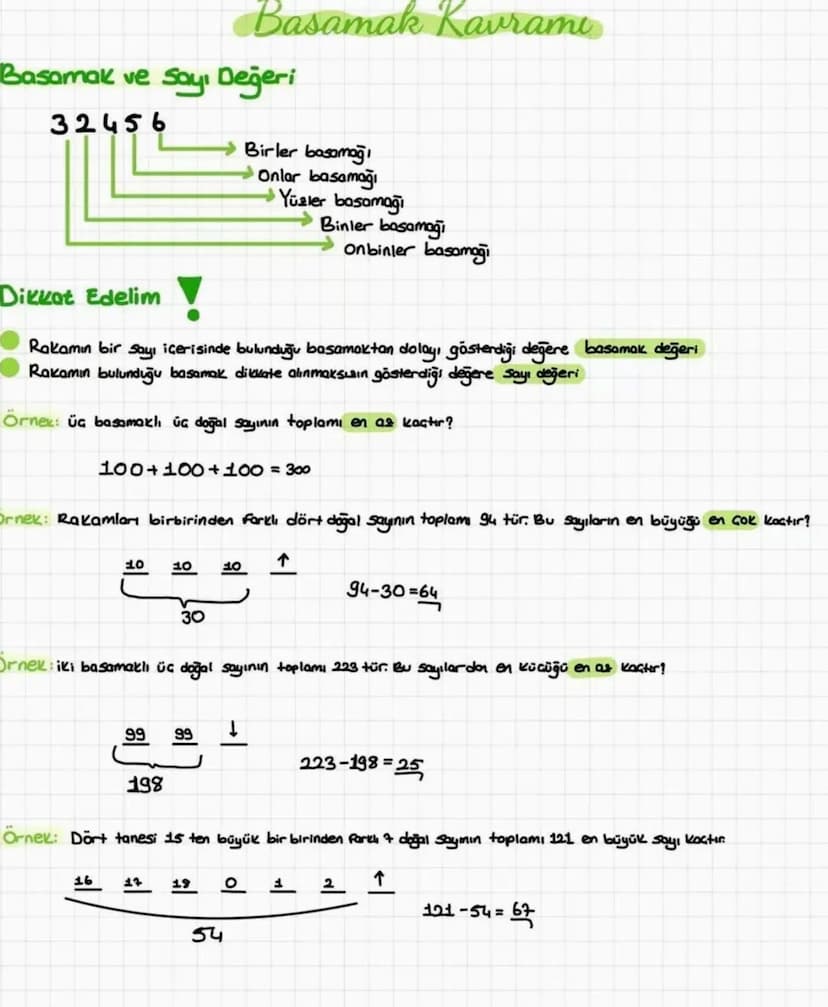 Basamak Kavramı
Basamak ve Sayı Değeri
32456
Birler basamağı
Onlar basamağı
Yüzler basamağı
Binler basamağı
Onbinler basamağı
Dikkat Edelim !
Rakamın bir sayı içerisinde bulunduğu basamaktan dolayı gösterdiği değere basamak değeri
Rakamın bulunduğu basamak dikkate alınmaksızın gösterdiği değere sayı değeri
Örnek: üç basamaklı üç doğal sayının toplamı en az kaçtır?
100+100+100 = 300
Örnek: Rakamları birbirinden farklı dört doğal sayının toplamı 94 tür. Bu sayıların en büyüğü en çok kaçtır?
10 10 10 ↑
30
94-30=64
Örnek: iki basamaklı üç doğal sayının toplamı 223 tür. Bu sayılardan en küçüğü en az kaçtır?
99 99 ↓
198
223-198=25
Örnek: Dört tanesi 15 ten büyük bir birinden farklı 7 doğal sayının toplamı 121 en büyük sayı kaçtır.
16 17 18 0 1 2 ↑
54
121-54= 67